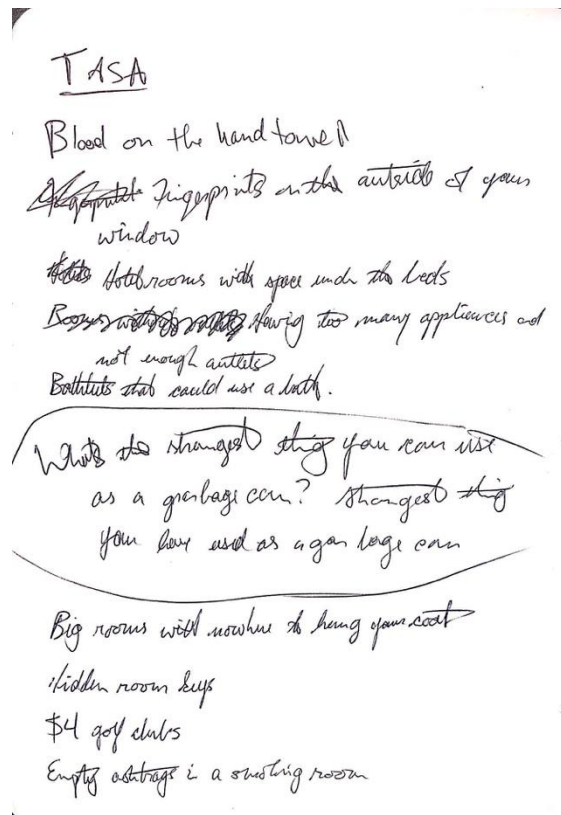 TASA
Blood on the hand towel
Fingerprints on the outside of your
window
Hotel rooms with space under the beds
Having too many appliances and
not enough outlets
Bathtubs that could use a bath.
What's the strangest thing you can use
as a garbage can? Strangest thing
you have used as a garbage can
Big rooms with nowhere to hang your coat
Hidden room keys
$4 golf clubs
Empty ashtrays in a smoking room